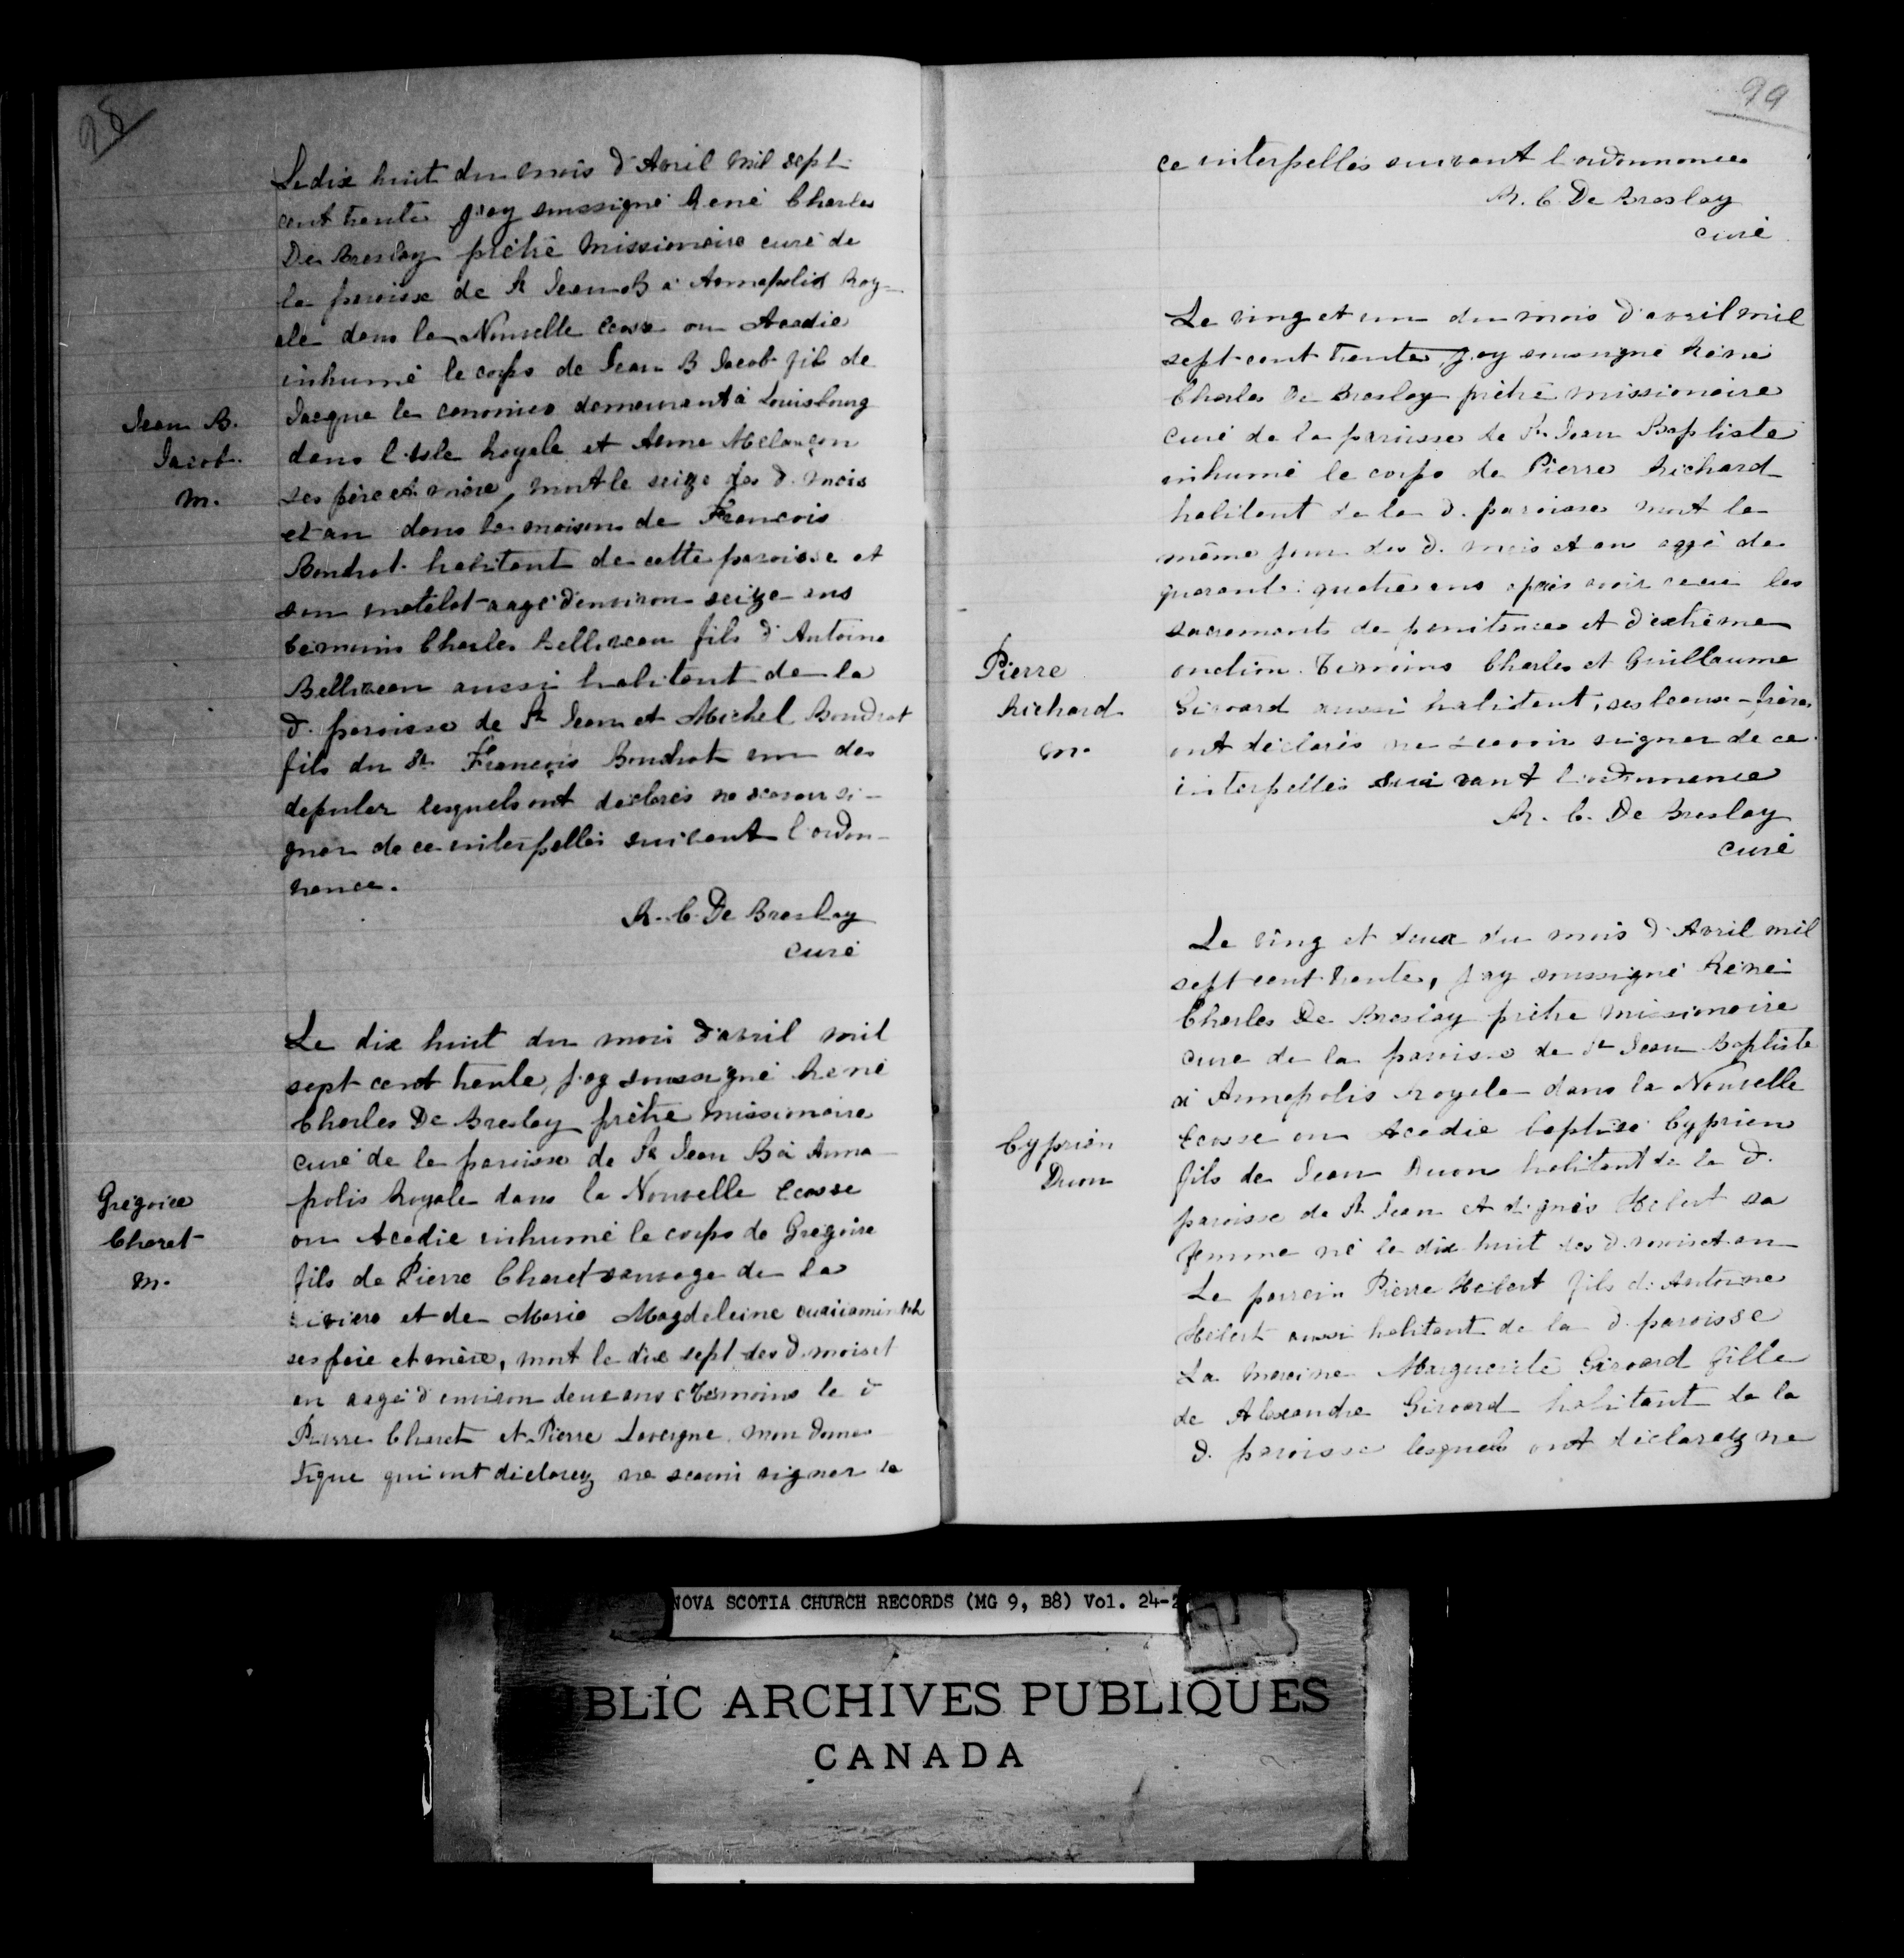 98
Le dix huit du mois d'Avril mil sept
cent trente j'ay soussigné René Charles
De Breslay prêtre missionaire curé de
la paroisse de St Jean B à Annapolis Roy-
ale dans la Nouvelle Ecosse ou Acadie
inhumé le corps de Jean B Jacob fils de
Jean B.
Jacob
m.
Jacque le canonier demeurant à Louisbourg
dans l'isle Royale et Anne Melançon
ses père et mère, mort le seize des d. mois
et an dans la maison de François
Boudrot habitant de cette paroisse et
son matelot aagé d'environ seize ans
temoins Charles Belliveau fils d'Antoine
Belliveau aussi habitant de la
d. paroisse de St Jean et Michel Boudrot
fils du Sr François Boudrot un des
deputez lesquels ont declarés ne scavoir si-
gner de ce interpellés suivant l'ordon-
nance.
R. C. De Breslay
curé
Le dix huit du mois d'avril mil
sept cent trente, j'ay soussigné René
Charles De Breslay prêtre missionaire
curé de la paroisse de St Jean B à Anna-
polis Royale dans la Nouvelle Ecosse
ou Acadie inhumé le corps de Grégoire
Grégoire
Charet
m.
fils de Pierre Charet sauvage de la
riviere et de Marie Magdeleine
ses père et mère, mort le dix sept des d. mois et
an aagé d'environ deux ans temoins le d
Pierre Charet et Pierre Lavergne mon domes-
tique qui ont declarez ne scavoir signer de
99
ce interpellés suivant l'ordonnance
R. C. De Breslay
curé
Le ving et un du mois d'avril mil
sept cent trente, j'ay soussigné René
Charles De Breslay prêtre missionaire
curé de la paroisse de St Jean Baptiste
inhumé le corps de Pierre Richard
habitant de la d. paroisse mort le
même jour des d. mois et an aagé de
quarante quatre ans après avoir receu les
sacrements de penitence et d'extrême
onction. Temoins Charles et Guillaume
Pierre
Richard
m.
Girouard aussi habitant, ses beaux-frères
ont déclarés ne scavoir signer de ce
interpellés suivant l'ordonnance
R. C. De Breslay
curé
Le ving et deux du mois d'Avril mil
sept cent trente, j'ay soussigné René
Charles De Breslay prêtre missionaire
curé de la paroisse de St Jean Baptiste
à Annapolis Royale dans la Nouvelle
Ecosse ou Acadie baptisé Cyprien
Cyprien
Duon
fils de Jean Duon habitant de la d.
paroisse de St Jean et d'Agnès Hebert sa
femme né le dix huit des d. mois et an
Le parrain Pierre Hebert fils d'Antoine
Hébert aussi habitant de la d. paroisse
La maraine Marguerite Girouard fille
de Alexandre Girouard habitant de la
d. paroisse lesquels ont déclarez ne
NOVA SCOTIA CHURCH RECORDS (MG 9, B8) Vol. 24-2
BLIC ARCHIVES PUBLIQUES
CANADA